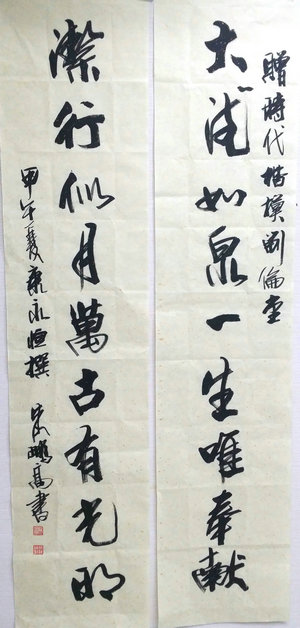 贈時代楷模劉倫堂
大德如泉一生唯奉獻
潔行似月萬古有光明
甲午夏康永恒撰
鵬高書